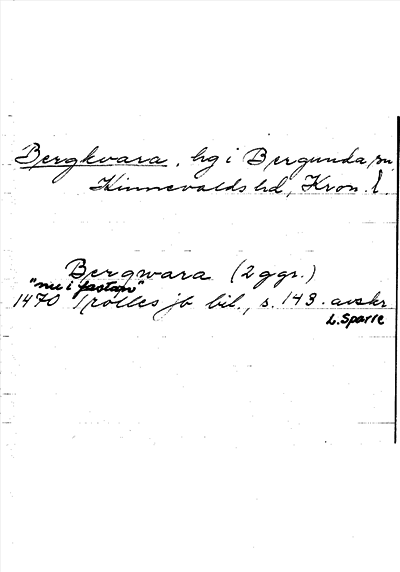 Bergkvara, hg i Bergunda sn
Kinnevalds hd, Kron. l.
Bergwara (2 ggr.)
"nu i fastan"
1470 Trolles jb bil., s. 143. avskr.
L. Sparre